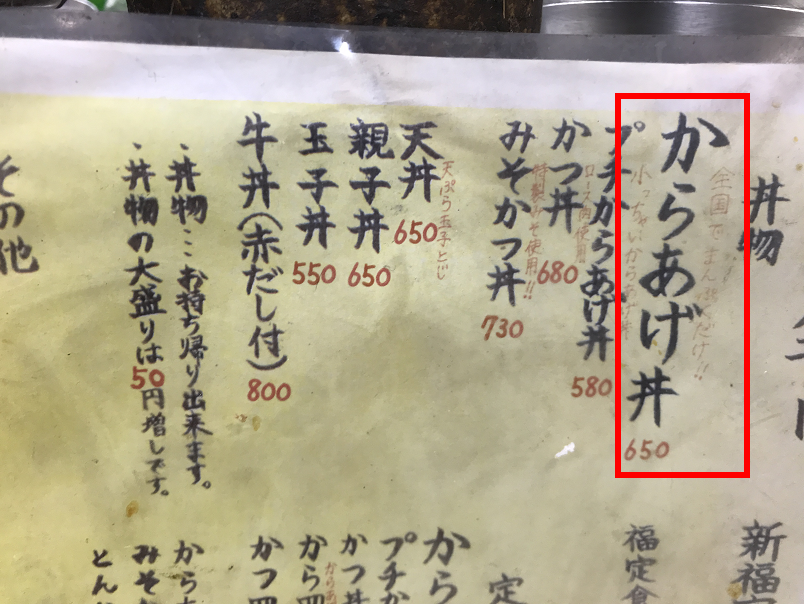 丼物
からあげ丼
650
プチからあげ丼
小っちゃいからあげ丼
580
かつ丼
ロース肉使用
680
みそかつ丼
特製みそ使用!!
730
天丼
天ぷら玉子とじ
650
親子丼
650
玉子丼
550
牛丼(赤だし付)
800
・丼物…お持ち帰り出来ます。
・丼物の大盛りは50円増しです。
その他
新福
福定食
定
から
プチか
かつ丼
から
カツ
から
みそ
とん